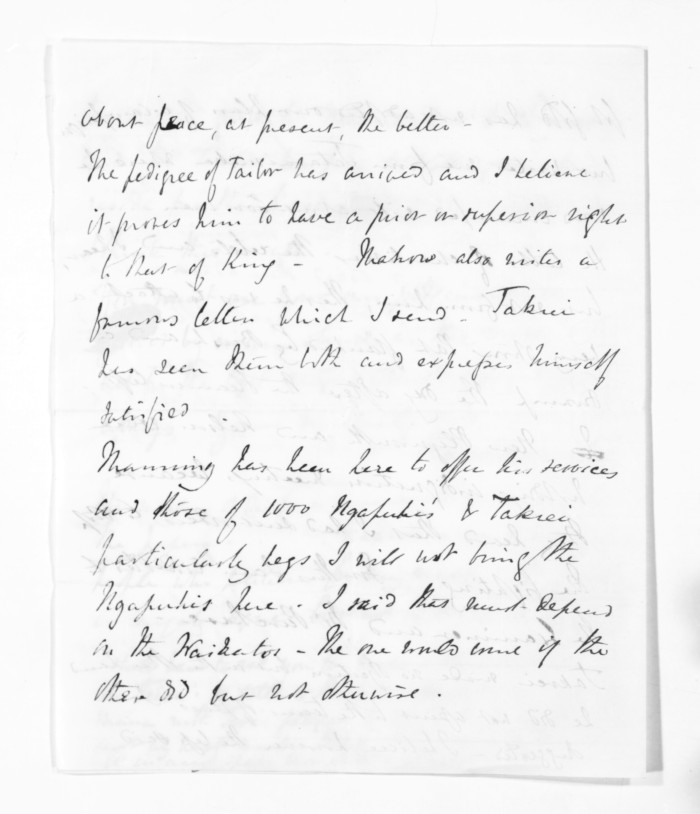 about peace, at present, the better -
The pedigree of Tailor has arrived and I believe
it proves him to have a prior or superior right
to that of King - Mahow also writes a
famous letter which I send - Takiei
has seen them both and expresses himself
satisfied .
Manning has been here to offer his services
and those of 1000 Ngapuhis & Takiei
particularly begs I will not bring the
Ngapuhis here - I said that must depend
on the Waikatos - The one would come if the
other did but not otherwise .